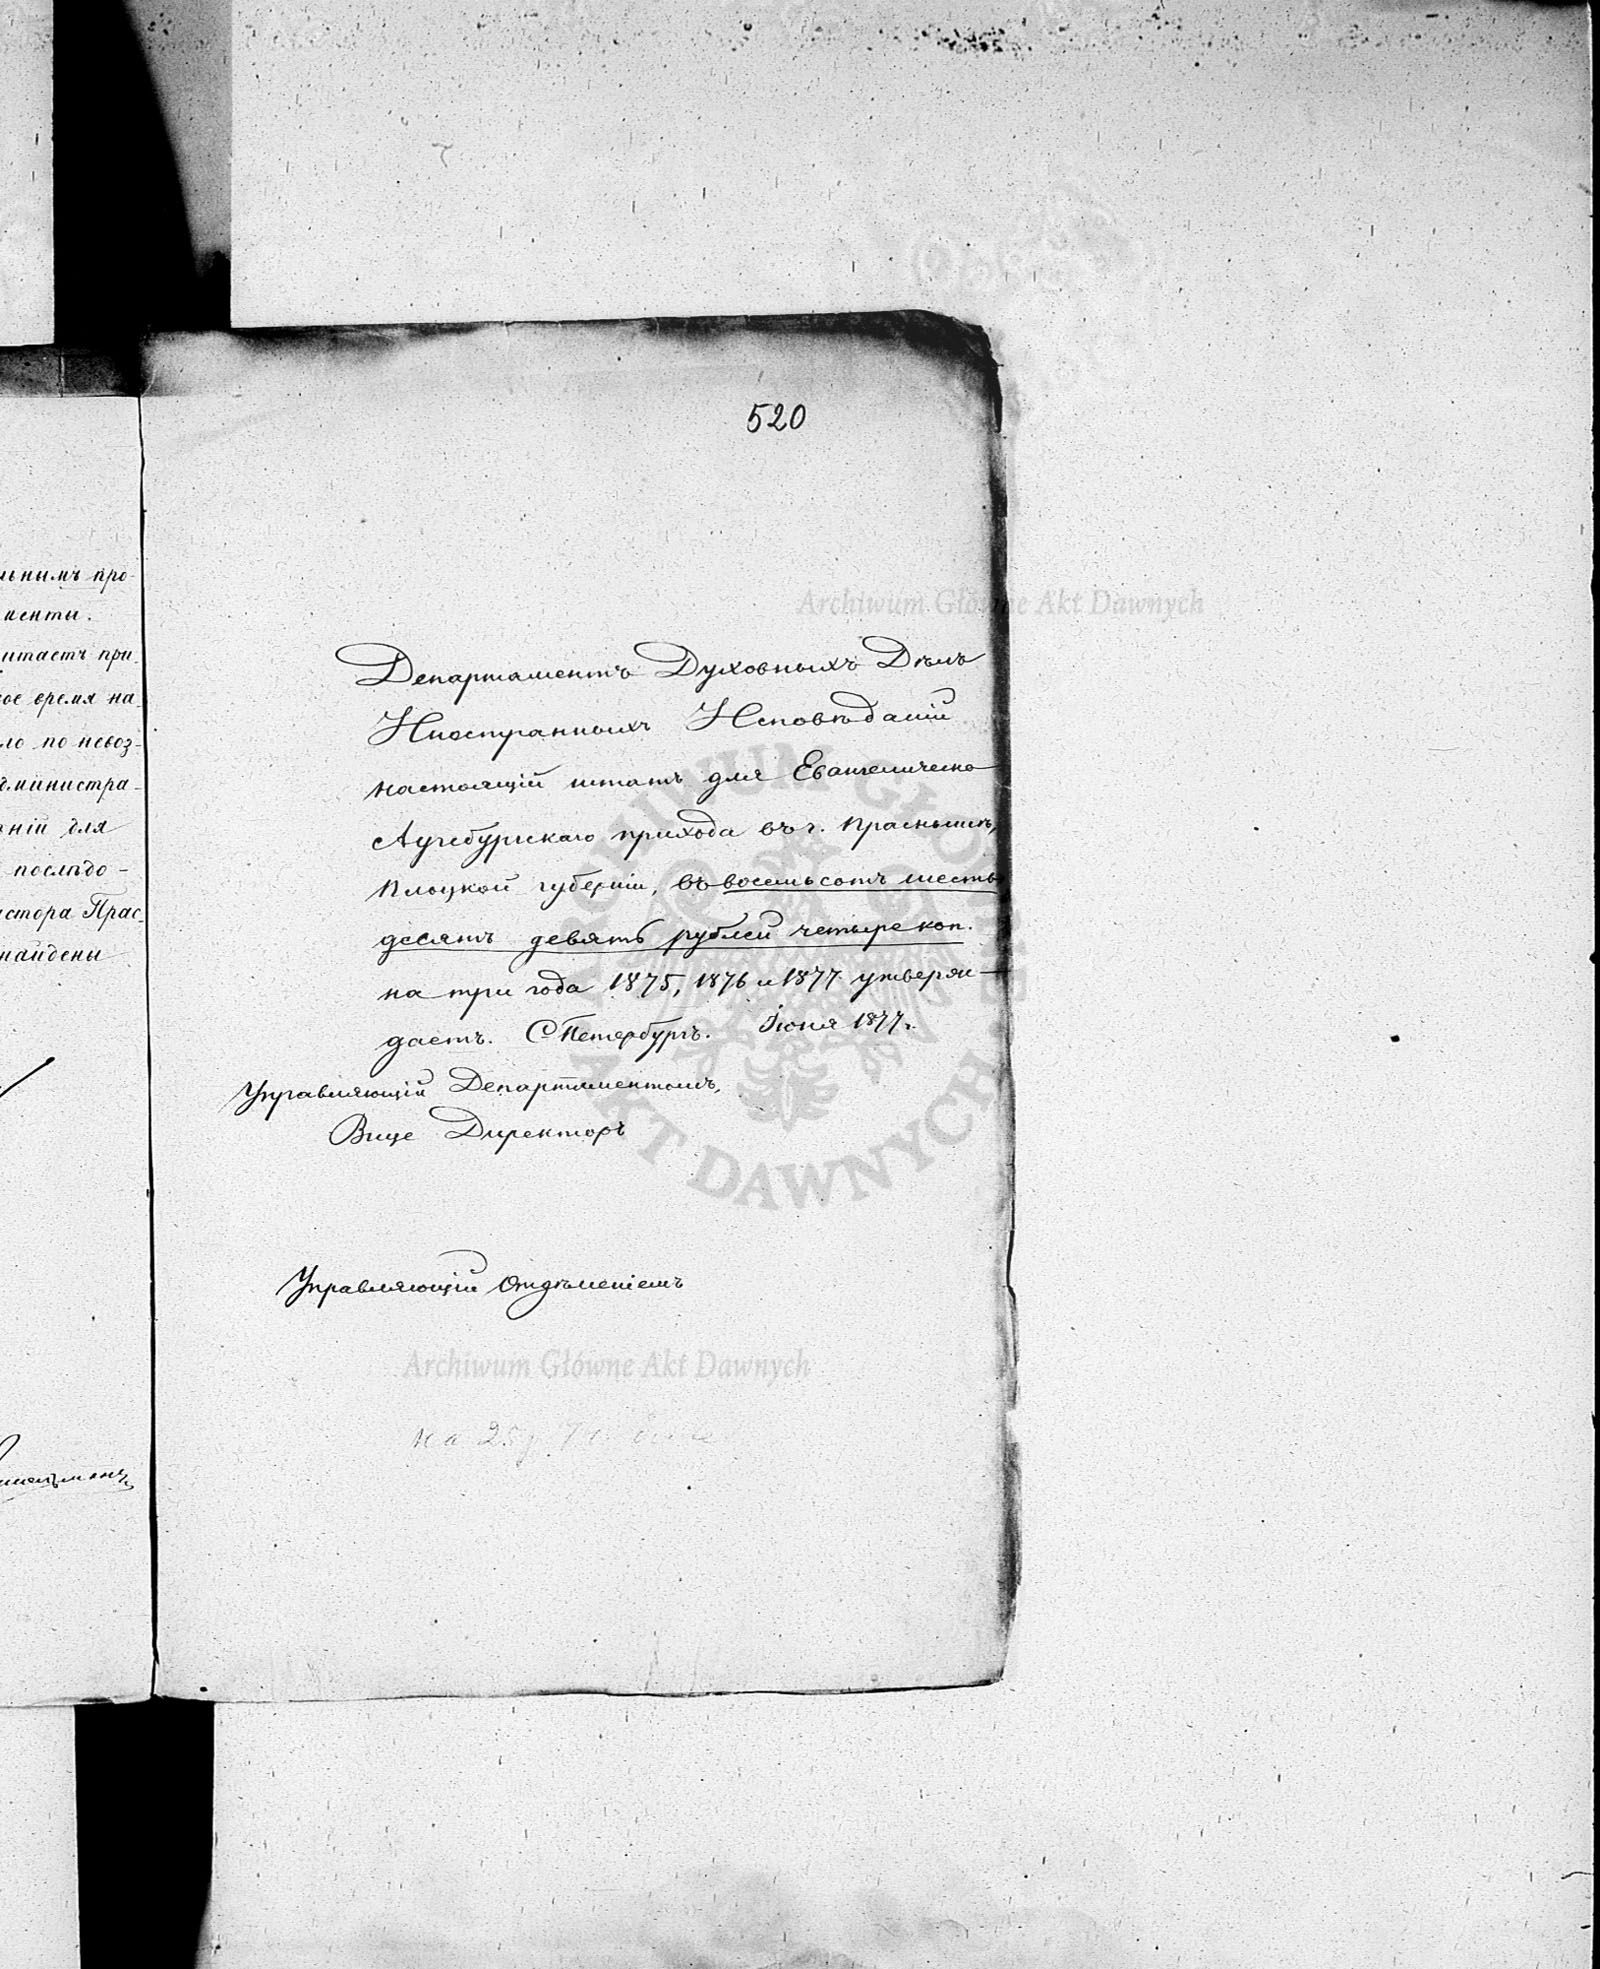 520
льнымъ про-
менты.
итаетъ при-
ое время на
ло по невоз-
дминистра-
ній для
послѣдо-
стора Прас-
найдены
Департаментъ Духовныхъ Дѣлъ
Иностранныхъ Исповѣданій
настоящій штатъ для Евангелическо
Аугсбургскаго прихода въ г. Праснышѣ,
Плоцкой губерніи, въ восемьсотъ шесть
десятъ девять рублей четыре коп.
на три года 1875, 1876 и 1877 утверж-
даетъ. С Петербургъ. Іюня 1877 г.
Управляющій Департаментомъ,
Вице Директоръ
Управляющій Отдѣленіемъ
на 25
Archiwum Główne Akt Dawnych
Archiwum Główne Akt Dawnych
ARCHIWUM GŁÓWNE AKT DAWNYCH